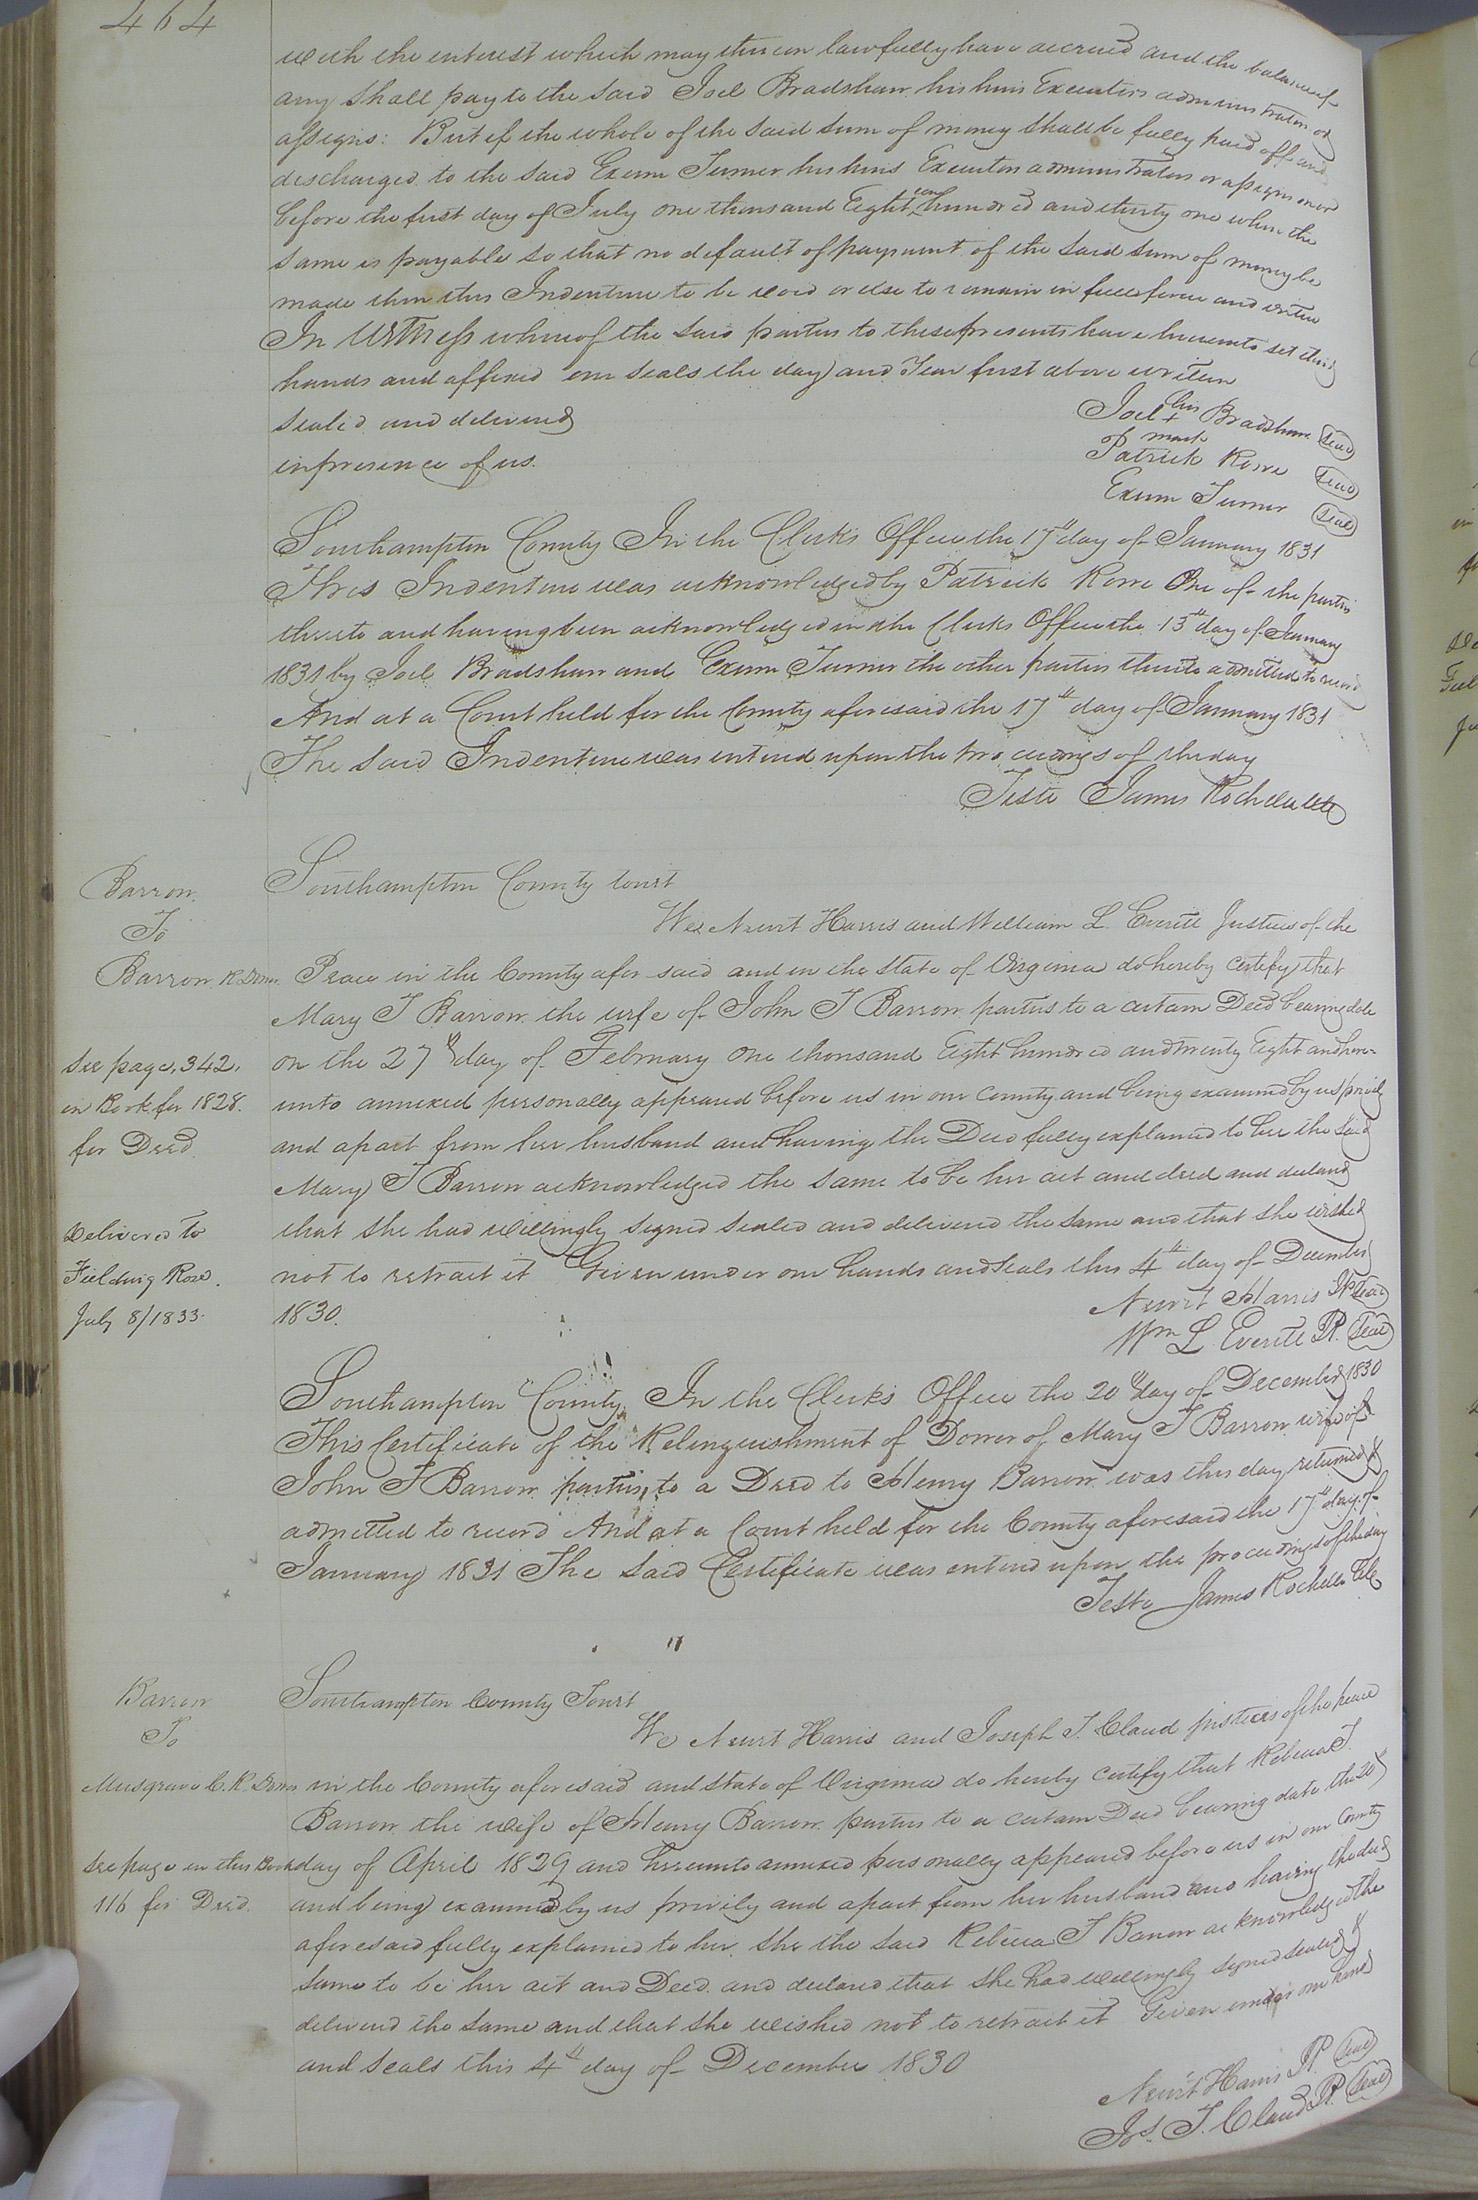 464
with the interest which may thereon lawfully have accrued and the balance if
any shall pay to the said Joel Bradshaw his heirs Executors administrators or
assigns: But if the whole of the said sum of money shall be fully paid off and
discharged to the said Exum Turner his heirs Executors administrators or assigns on or
before the first day of July one thousand Eight hundred and thirty one when the
same is payable so that no default of payment of the said sum of money be
made then this Indenture to be void or else to remain in full force and virtue
In Witness whereof the said parties to these presents have hereunto set their
hands and affixed our seals the day and Year first above written
Sealed and delivered
in presence of us.
Joel his + mark Bradshaw Seal
of
Patrick Rowe Seal
Exum Turner Seal
Southampton County In the Clerks Office the 17th day of January 1831
This Indenture was acknowledged by Patrick Rowe One of the parties
thereto and having been acknowledged in the Clerks Office the 13th day of January
1831 by Joel Bradshaw and Exum Turner the other parties thereto admitted to record
And at a Court held for the County aforesaid the 17th day of January 1831
The said Indenture was entered upon the proceedings of the day
Teste James Rochelle Clk
Barrow
To
Barrow R. Dower
See page, 342,
in Book for 1828.
for Deed
Delivered to
Fielding Rose.
July 8/1833.
Southampton County Court
We Newit Harris and William L. Everitt Justices of the
Peace in the County afor said and in the State of Virginia do hereby certify that
Mary T Barrow the wife of John T Barrow parties to a certain Deed bearing date
on the 27th day of February One thousand Eight hundred and twenty Eight and here-
unto annexed personally appeared before us in our County and being examined by us privily
and apart from her husband and having the Deed fully explained to her the said
Mary T Barrow acknowledged the same to be her act and deed and declared
that she had willingly signed sealed and delivered the same and that she wished
not to retract it Given under our hands and Seals this 4th day of December
1830.
Newit Harris JP Seal
Wm L Everitt JP. Seal
Southampton County In the Clerks Office the 20th day of December 1830
This Certificate of the Relinquishment of Dower of Mary T Barrow wife of
John T Barrow parties to a Deed to Henry Barrow was this day returned &
admitted to record And at a Court held for the County aforesaid the 17th day of
January 1831 The said Certificate was entered upon the proceedings of the day
Teste James Rochelle Clk
Barrow
To
Musgrave C. R. Dower
See page in this Book
116 for Deed.
Southampton County Court
We Newit Harris and Joseph T. Claud justices of the peace
in the County aforesaid and State of Virginia do hereby certify that Rebecca T.
Barrow the wife of Henry Barrow parties to a certain Deed bearing date the 20
day of April 1829 and hereunto annexed personally appeared before us in our County
and being examined by us privily and apart from her husband and having the deed
aforesaid fully explained to her she the said Rebecca T Barrow acknowledged the
same to be her act and Deed and declared that she had willingly signed sealed &
delivered the same and that she wished not to retract it Given under our hands
and seals this 4th day of December 1830
Newit Harris JP Seal
Jos. T. Claud JP. Seal